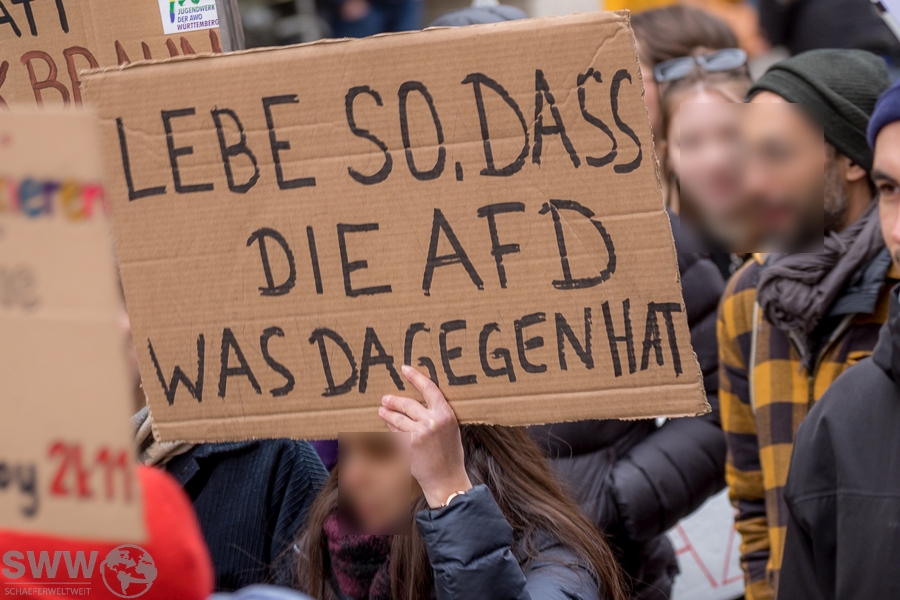 ATT
BRAUN
JUGENDWERK
DER AWO
WÜRTTEMBERG
LEBE SO, DASS
DIE AFD
WAS DAGEGEN HAT
SWW
SCHAEFERWELTWEIT